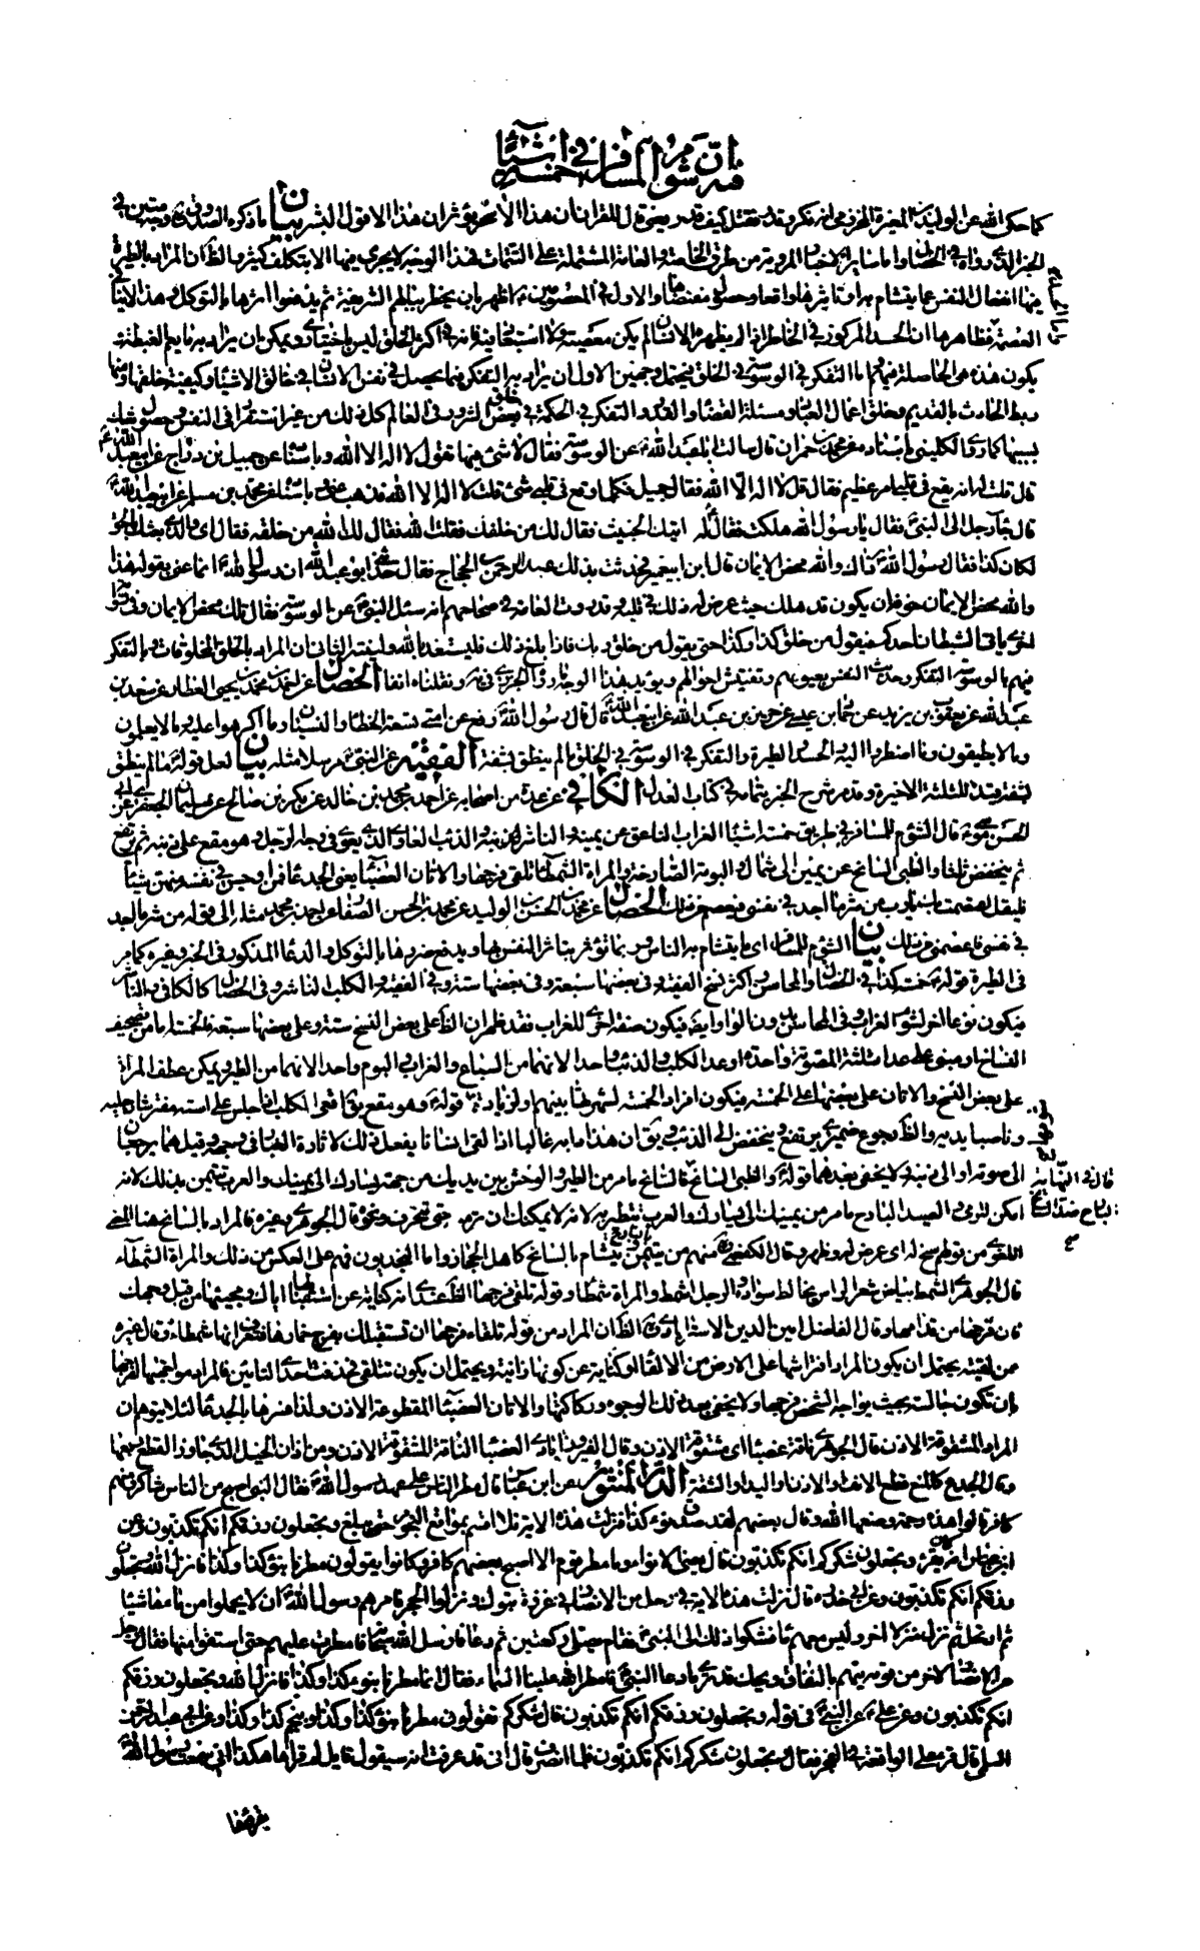 فيه ان شوم المسافر في خمسة اشياء
كما حكى الله عن الوليد بن المغيرة المخزومي انه فكر وقدر فقتل كيف قدر يعني قال للقران ان هذا الا سحر يؤثر ان هذا الا قول البشر بيان ما ذكره الصدوق ره وجه متين في
الخبر الذي رواه في الخصال واما سائر الاخبار المروية من طرق الخاصة والعامة المشتملة على التتمات فهذا الوجه لا يجري فيها الا بتكلف كثير والظ ان المراد بالطيرة
فيها انفعال النفس عما يتشام به او تاثيرها واقعا وحصول مقتضاها والاول في المعصومين
العصمة فظاهرها ان الحسد المركوز في الخاطر اذا لم يظهره الانسان لم يكن معصية والا استبعاد فيه فانه في اكثر الخلق ليس باختياري ويمكن ان يراد به ما يعم الغبطة
يكون هذه هي الحاصلة فيهم اما التفكر في الوسوسة في الخلق فيحتمل وجهين الاول ان يراد به التفكر فيما يحصل في نفس الانسان في خالق الاشياء وكيفية خلقها
ربط الحادث بالقديم وخلق اعمال العباد ومسئلة القضاء والقدر والتفكر في الحكمة في خلق بعض الشرور في العالم كل ذلك من غير استقرار في النفس وحصول شك
بسببها كما روى الكليني باسناده عن محمد بن حمران قال سالت ابا عبد الله عن الوسوسة فقال لا شئ فيها تقول لا اله الا الله وباسناده عن جميل بن دراج عن ابي عبد الله
قال قلت له انه يقع في قلبي امر عظيم فقال قل لا اله الا الله فقال جميل فكلما وقع في قلبي شئ قلت لا اله الا الله فذهب عني وباسناده عن محمد بن مسلم عن ابي عبد الله
قال جاء رجل الى النبي فقال يا رسول الله هلكت فقال له اتاك الخبيث فقال لك من خلقك فقلت الله فقال لك الله من خلقه فقال اي والذي بعثك بالحق
لكان كذا فقال رسول الله ذاك والله محض الايمان قال ابن ابي عمير فحدثت بذلك عبد الرحمن بن الحجاج فقال حدثني ابو عبد الله ان رسول الله انما عنى بقوله هذا
والله محض الايمان خوفه ان يكون قد هلك حيث عرض له ذلك في قلبه وقد روت العامة في صحاحهم انه سئل النبي عن الوسوسة فقال تلك محض الايمان وفي رواية
اخرى ياتي الشيطان احدكم فيقول من خلق كذا وكذا حتى يقول من خلق ربك فاذا بلغ ذلك فليستعذ بالله ولينته الثاني ان المراد بالخلق المخلوقات وبالتفكر
فيهم بالوسوسة التفكر وحديث النفس بعيوبهم وتفتيش احوالهم ويؤيد هذا الوجه ونقلناه انفا الخصال عن احمد بن محمد بن يحيى العطار عن سعد بن
عبد الله عن يعقوب بن يزيد عن حماد بن عيسى عن حريز بن عبد الله عن ابي عبد الله قال قال رسول الله رفع عن امتي تسعة الخطاء والنسيان وما اكرهوا عليه وما لا يعلمون
وما لا يطيقون وما اضطروا اليه والحسد والطيرة والتفكر في الوسوسة في الخلق ما لم ينطق بشفة الفقيه عن النبي مرسلا مثله بيان لعل قوله ما لم ينطق
بشفة قيد للثلثة الاخيرة وقد مر شرح الخبر بتمامه في كتاب العدل الكافي عن عدة من اصحابه عن احمد بن محمد بن خالد عن بكر بن صالح عن سليمان الجعفري عن ابي
الحسن موسى قال الشوم للمسافر في طريقه خمسة اشياء الغراب الناعق عن يمينه والناشر لذنبه والذئب العاوي الذي يعوي في وجه الرجل وهو مقع على ذنبه ثم يرتفع
ثم ينخفض ثلثا والظبي السانح عن يمين الى شمال والبومة الصارخة والمراة الشمطاء تلقى فرجها والاتان العضباء يعني الجدعاء فمن اوجس في نفسه منهن شيئا
فليقل اعتصمت بك يا رب من شر ما اجد في نفسي فيعصم من ذلك الخصال عن محمد بن الحسن بن الوليد عن محمد بن الحسن الصفار عن احمد بن محمد مثله الى قوله من شر ما اجد
في نفسي فاعصمني من ذلك بيان الشوم للمسافر اي ما يتشام به الناس وربما تؤثر بتاثر النفس بها ويدفع ضررها بالتوكل والدعاء المذكور في الخبر وغيره كما مر
في الطيرة قوله خمسة كذا في الخصال والمحاسن واكثر نسخ الفقيه وفي بعضها سبعة وفي بعضها ستة وفي الفقيه والكلب الناشر وفي الخصال كالكافي والناشر
فيكون نوعا اخر لشوم الغراب وفي المحاسن بدون الواو ايضا فيكون صفة اخرى للغراب فقد ظهر ان الظ على بعض النسخ ستة وعلى بعضها سبعة فالخمسة اما من تصحيف
النساخ او مبني على عد الثلثة المصوتة واحدة او عد الكلب والذئب واحدا لانهما من السباع والغراب والبوم واحدا لانهما من الطير ويمكن عطف المراة
على بعض النسخ والاتان على بعضها على الخمسة فيكون افراد الخمسة لشهرتها بينهم او لزيادة قوله وهو مقع يق اقعى الكلب اذا جلس على استه مفترشا رجليه
وناصبا يديه والظ رجوع ضميري يرتفع وينخفض الى الذئب ويق ان هذا دابه غالبا اذا لقي انسانا يفعل ذلك لاثارة الغبار في وجهه وقيل هما يرجعان
الى صوته او الى ذنبه ولا يخفى بعدهما قوله والظبي السانح فالسانح ما مر من الطير والوحش بين يديك من جهة يسارك الى يمينك والعرب تتيمن بذلك لانه
امكن للرمي والصيد والبارح ما مر من يمينك الى يسارك والعرب تتطير به لانه لا يمكنك ان ترميه حتى تنحرف ونحوه قال الجوهري وغيره فالمراد بالسانح هنا المعنى
اللغوي من قولهم سنح له اي عرض له وظهر وقال الكفعمي منهم من يتيمن بالبارح ويتشام بالسانح كاهل الحجاز واما النجديون فهم على العكس من ذلك والمراة الشمطاء
قال الجوهري الشمط بياض شعر الراس يخالط سواده والرجل اشمط والمراة شمطاء وقوله تلقى فرجها الظ عندي انه كناية عن استقبالها اياك ومجيئها من قبل وجهك
فان فرجها من قدامها وقال الفاضل امين الدين الاسترابادي الظ ان المراد من قوله تلقاء فرجها ان تستقبلك بفرج خمارها فتعرف انها شمطاء وقال غيره
ممن لقيته يحتمل ان يكون المراد افتراشها على الارض من الالقاء او كناية عن كونها زانية ويحتمل ان يكون تتلقى فحذفت احدى التائين فالمراد مواجهتها لفرجها
بان تكون جالسة بحيث يواجه الشخص فرجها ولا يخفى بعد تلك الوجوه وركاكتها والاتان العضباء المقطوعة الاذن ولذا فسرها بالجدعاء لئلا يتوهم ان
المراد المشقوقة الاذن قال الجوهري ناقة عضباء اي مشقوقة الاذن وقال الفيروزابادي العضباء الناقة المشقوقة الاذن ومن اذان الخيل الذي جاوز القطع ربعها
وقال الجدع كالمنع قطع الانف او الاذن او اليد او الشفة الدر المنثور عن ابن عباس قال مطر الناس على عهد رسول الله فقال النبي اصبح من الناس شاكر ومنهم
كافر قالوا هذه رحمة وضعها الله وقال بعضهم لقد صدق نوء كذا فنزلت هذه الاية فلا اقسم بمواقع النجوم حتى بلغ وتجعلون رزقكم انكم تكذبون وعن
ابن عباس انه كان يقرء وتجعلون شكركم انكم تكذبون قال يعني الانواء وما مطر قوم الا اصبح بعضهم كافرا وكانوا يقولون مطرنا بنوء كذا وكذا فانزل الله وتجعلون
رزقكم انكم تكذبون وعن ابي حزرة قال نزلت هذه الاية في رجل من الانصار في غزوة تبوك ونزلوا الحجر فامرهم رسول الله ان لا يحملوا من مائها شيئا
ثم ارتحل ثم نزل منزلا اخر وليس معهم ماء فشكوا ذلك الى النبي فقام يصلي ركعتين ثم دعا فارسل الله سحابة فامطرت عليهم حتى استقوا منها فقال رجل
من الانصار لاخر من قومه يتهم بالنفاق ويحك قد ترى ما دعا النبي فامطر الله علينا السماء فقال انما مطرنا بنوء كذا وكذا فانزل الله وتجعلون رزقكم
انكم تكذبون وعن علي عن النبي في قوله وتجعلون رزقكم انكم تكذبون قال شكركم تقولون مطرنا بنوء كذا وكذا وبنجم كذا وكذا وعن ابي عبد الرحمن
السلمي قال قرء علي الواقعة في الفجر فقال وتجعلون شكركم انكم تكذبون فلما انصرف قال اني قد عرفت انه سيقول قايل لم قراها هكذا اني سمعت رسول الله
قال في النهاية
البارح ضد السانح
يقرؤها